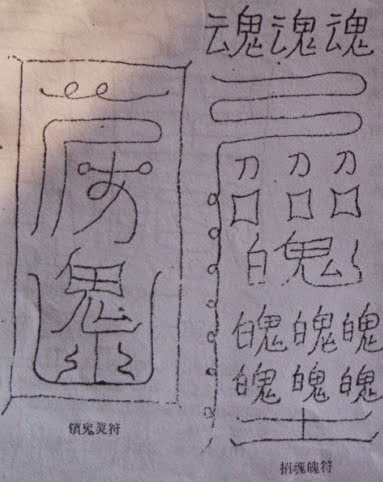 鬼
锁鬼灵符
魂魂魂
刀刀刀
口口口
魄
魄魄魄
魄魄魄
招魂魄符